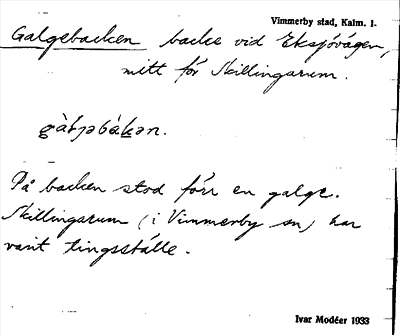 Vimmerby stad, Kalm. l.
Galgebacken backe vid Eksjövägen,
mitt för Skillingarum.
gàljəbákən.
På backen stod förr en galge.
Skillingarum (i Vimmerby sn) har
varit tingsställe.
Ivar Modéer 1933